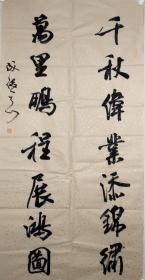 千秋偉業添錦繡
萬里鵬程展鴻圖